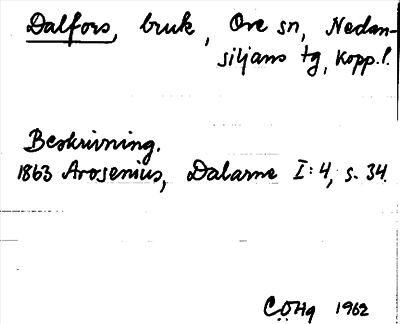 Dalfors, bruk, Ore sn, Nedan-
siljans tg, Kopp.l.
Beskrivning.
1863 Arosenius, Dalarne I:4, s. 34.
CÖHg 1962